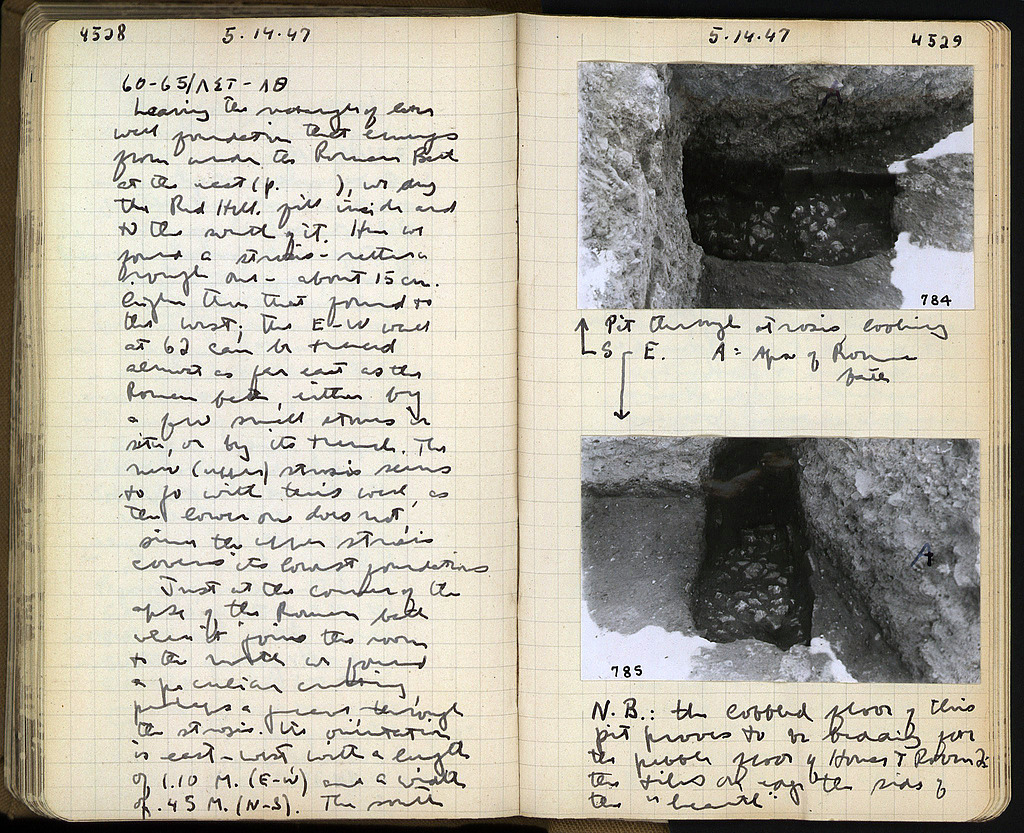 4528
5.14.47
60-65/ΛΣΤ-ΛΘ
Leaving the of
wall foundation that emerges
from under the Roman Bath
at the west (p. ), we dug
the Red Hell. fill inside and
to the south of it. Here we
found a strosis - rather
rough one - about 15 cm.
higher than that found to
the west; the E-W wall
at 62 can be traced
almost as far east as the
Roman bath, either by
a few small stones in
situ, or by its trench. The
new (upper) strosis seems
to go with this wall, as
the lower one does not,
since the upper strosis
covers its lowest foundations
Just at the corner of the
apse of the Roman bath
where it joins the room
to the north we found
a peculiar cutting,
perhaps a grave, through
the strosis. Its orientation
is east-west with a length
of 1.10 M. (E-W) and a width
of .45 M. (N-S). The south
5.14.47
4529
784
Pit through strosis looking
S E. A = Apse of Roman
bath
A
785
N.B.: the cobbled floor of this
pit proves to be bedding for
the pebble floor of House T Room
the tiles on edge the sides of
the "hearth"